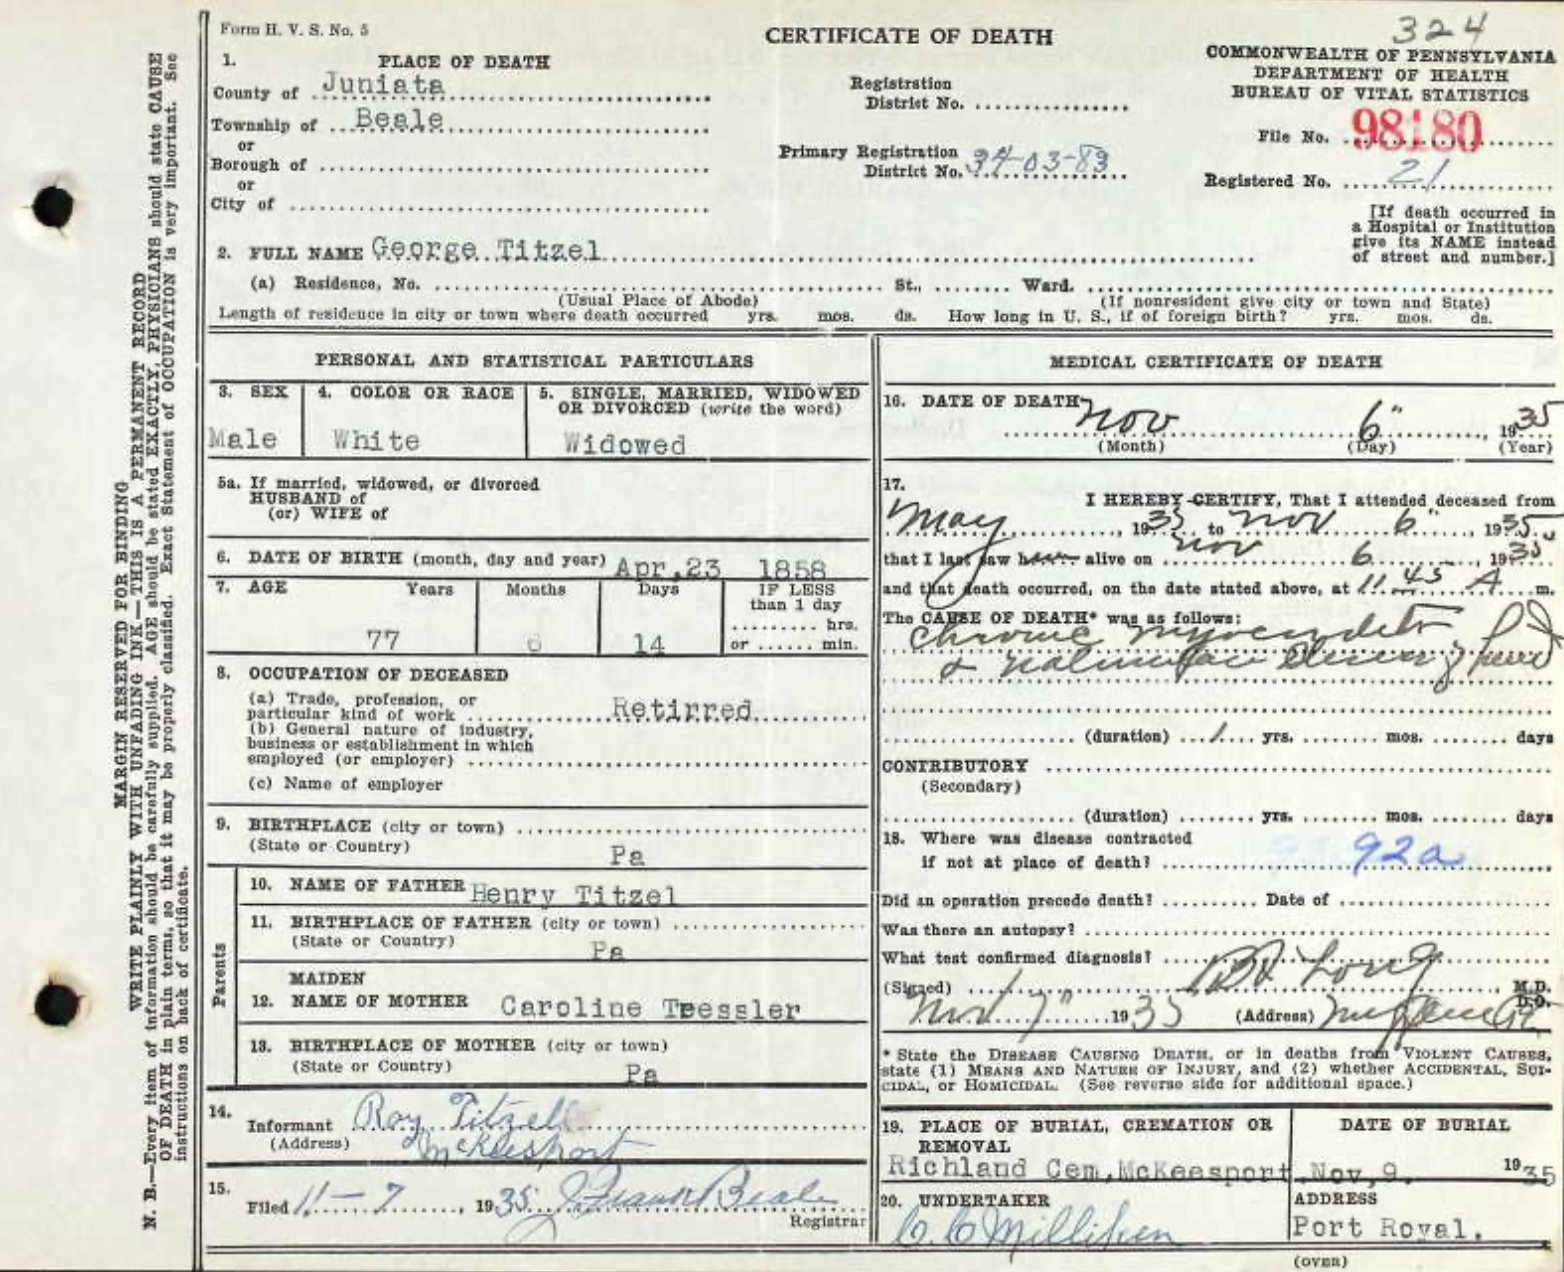 Form H. V. S. No. 5
CERTIFICATE OF DEATH
324
COMMONWEALTH OF PENNSYLVANIA
DEPARTMENT OF HEALTH
BUREAU OF VITAL STATISTICS
1. PLACE OF DEATH
County of Juniata
Township of Beale
or
Borough of
or
City of
Registration
District No.
Primary Registration
District No. 34-03-83
File No. 98180
Registered No. 21
[If death occurred in
a Hospital or Institution
give its NAME instead
of street and number.]
2. FULL NAME George Titzel
(a) Residence, No. St., Ward.
(Usual Place of Abode) (If nonresident give city or town and State)
Length of residence in city or town where death occurred yrs. mos. ds. How long in U. S., if of foreign birth? yrs. mos. ds.
PERSONAL AND STATISTICAL PARTICULARS
3. SEX
Male
4. COLOR OR RACE
White
5. SINGLE, MARRIED, WIDOWED
OR DIVORCED (write the word)
Widowed
5a. If married, widowed, or divorced
HUSBAND of
(or) WIFE of
6. DATE OF BIRTH (month, day and year) Apr,23 1858
7. AGE Years Months Days IF LESS
than 1 day
hrs.
77 6 14 or min.
8. OCCUPATION OF DECEASED
(a) Trade, profession, or
particular kind of work Retirred
(b) General nature of industry,
business or establishment in which
employed (or employer)
(c) Name of employer
9. BIRTHPLACE (city or town)
(State or Country) Pa
Parents
10. NAME OF FATHER Henry Titzel
11. BIRTHPLACE OF FATHER (city or town)
(State or Country) Pa
MAIDEN
12. NAME OF MOTHER Caroline Tressler
13. BIRTHPLACE OF MOTHER (city or town)
(State or Country) Pa
14.
Informant Roy Titzell
(Address) McKeesport
15.
Filed 11-7, 1935 J Frank Beale
Registrar
MEDICAL CERTIFICATE OF DEATH
16. DATE OF DEATH
Nov 6", 1935
(Month) (Day) (Year)
17.
I HEREBY CERTIFY, That I attended deceased from
May, 1935 to Nov 6", 1935
that I last saw h alive on Nov 6, 1935
and that death occurred, on the date stated above, at 11.45 A m.
The CAUSE OF DEATH* was as follows:
Chronic
&
(duration) 1 yrs. mos. days
CONTRIBUTORY
(Secondary)
(duration) yrs. mos. days
18. Where was disease contracted
if not at place of death? 92a
Did an operation precede death? Date of
Was there an autopsy?
What test confirmed diagnosis?
(Signed) Long, M.D.
D.O.
Nov 7", 1935 (Address)
* State the DISEASE CAUSING DEATH, or in deaths from VIOLENT CAUSES,
state (1) MEANS AND NATURE OF INJURY, and (2) whether ACCIDENTAL, SUI-
CIDAL, or HOMICIDAL. (See reverse side for additional space.)
19. PLACE OF BURIAL, CREMATION OR
REMOVAL
Richland Cem,McKeesport
DATE OF BURIAL
Nov,9. 1935
20. UNDERTAKER
C. C Milliken
ADDRESS
Port Royal.
(OVER)
MARGIN RESERVED FOR BINDING
WRITE PLAINLY WITH UNFADING INK—THIS IS A PERMANENT RECORD
N. B.—Every item of information should be carefully supplied. AGE should be stated EXACTLY, PHYSICIANS should state CAUSE
OF DEATH in plain terms, so that it may be properly classified. Exact Statement of OCCUPATION is very important. See
instructions on back of certificate.